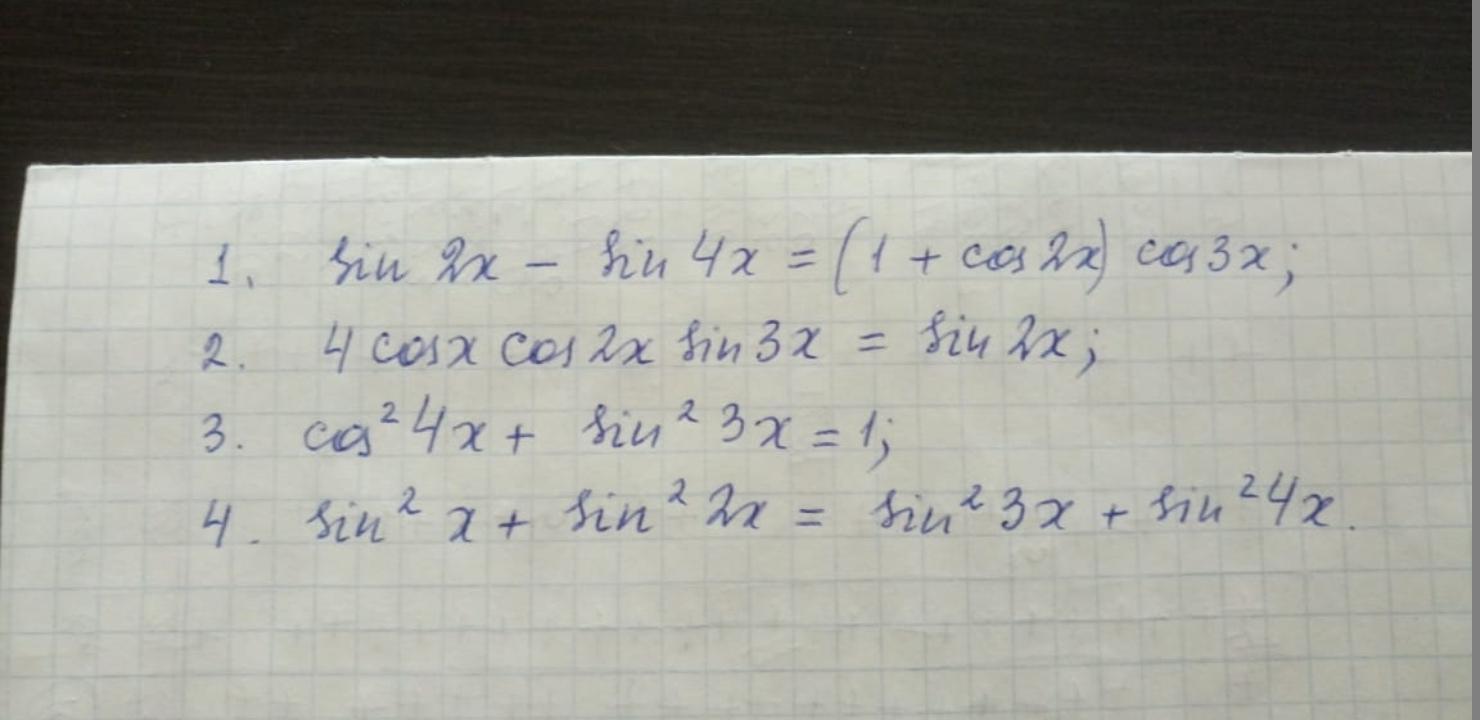 1. sin 2x - sin 4x = (1 + cos 2x) cos 3x;
2. 4 cos x cos 2x sin 3x = sin 2x;
3. cos² 4x + sin² 3x = 1;
4. sin² x + sin² 2x = sin² 3x + sin² 4x.